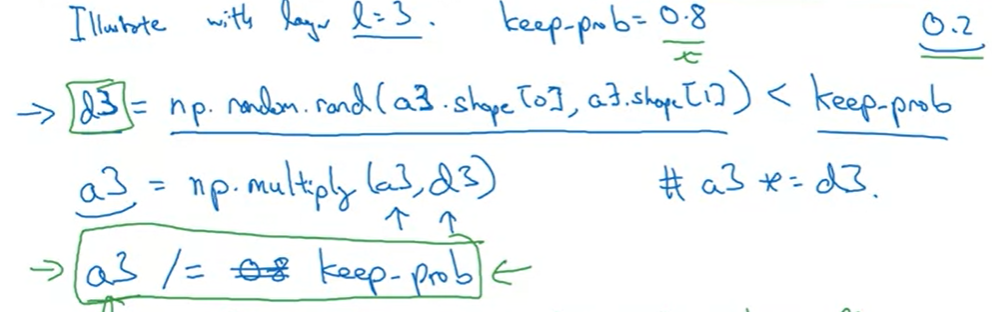 Illustrate with layer l=3. keep-prob= 0.8 0.2
x
→ d3 = np.random.rand(a3.shape[0], a3.shape[1]) < keep-prob
a3 = np.multiply(a3, d3) # a3 *= d3.
↑ ↑
→ a3 /= 0.8 keep-prob ←